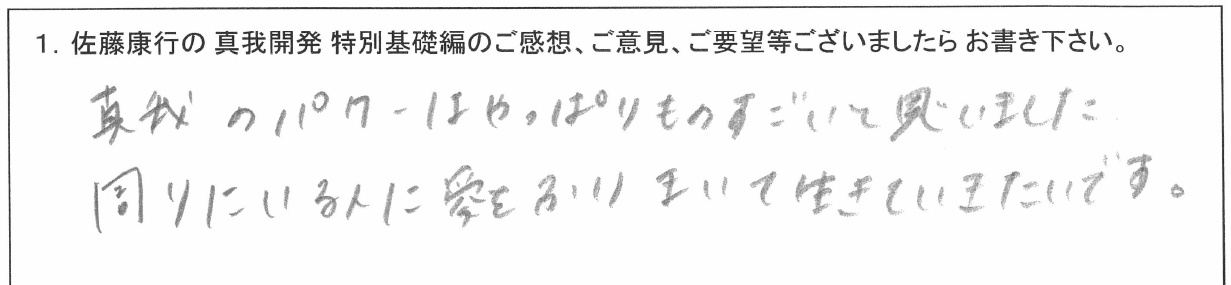 1. 佐藤康行の 真我開発 特別基礎編のご感想、ご意見、ご要望等ございましたら お書き下さい。
真我のパワーはやっぱりものすごいと思いました
周りにいる人に愛をふりまいて生きていきたいです。